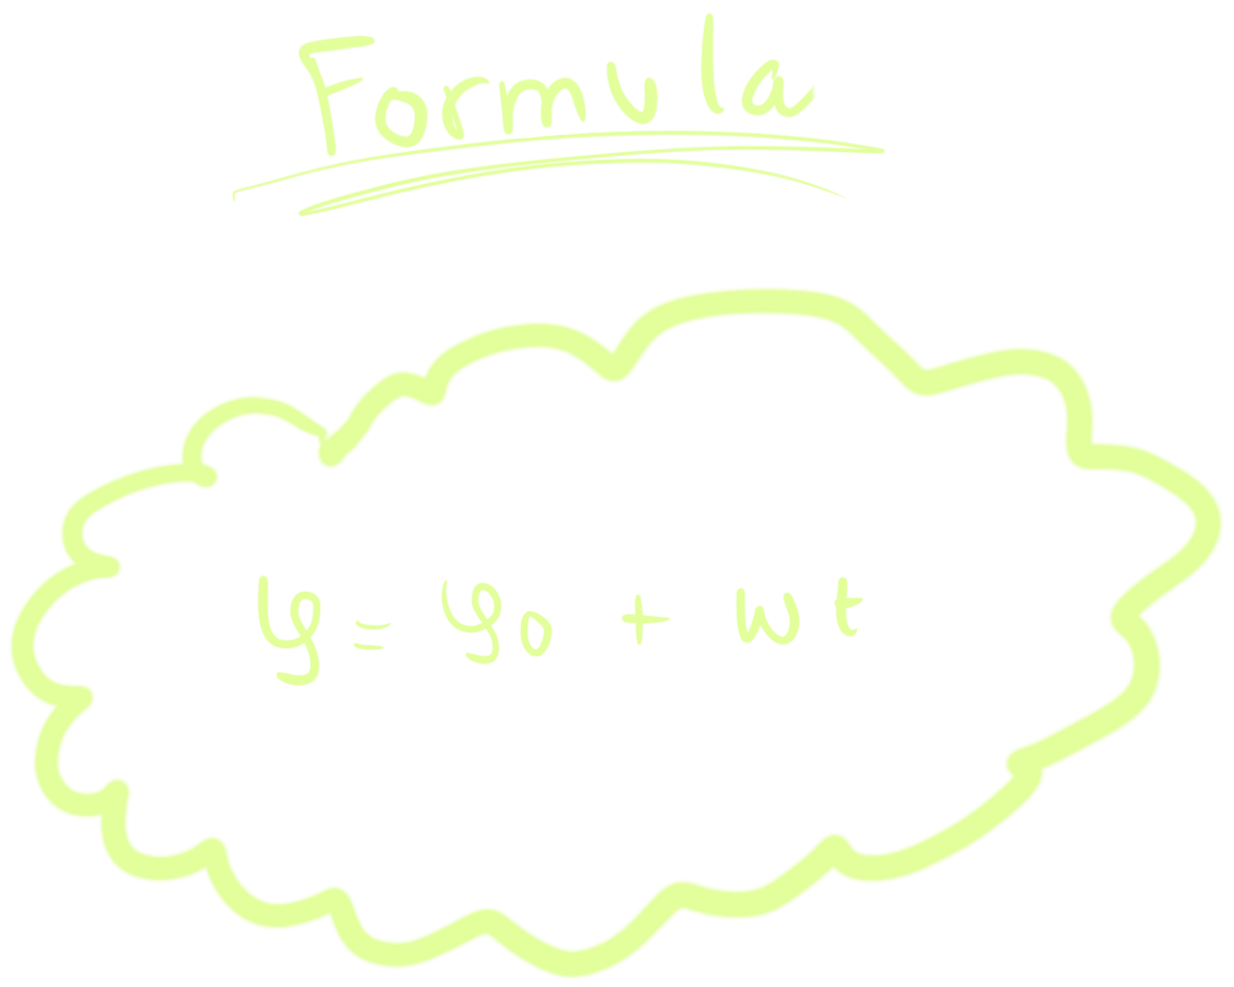 Formula
φ = φ0 + wt